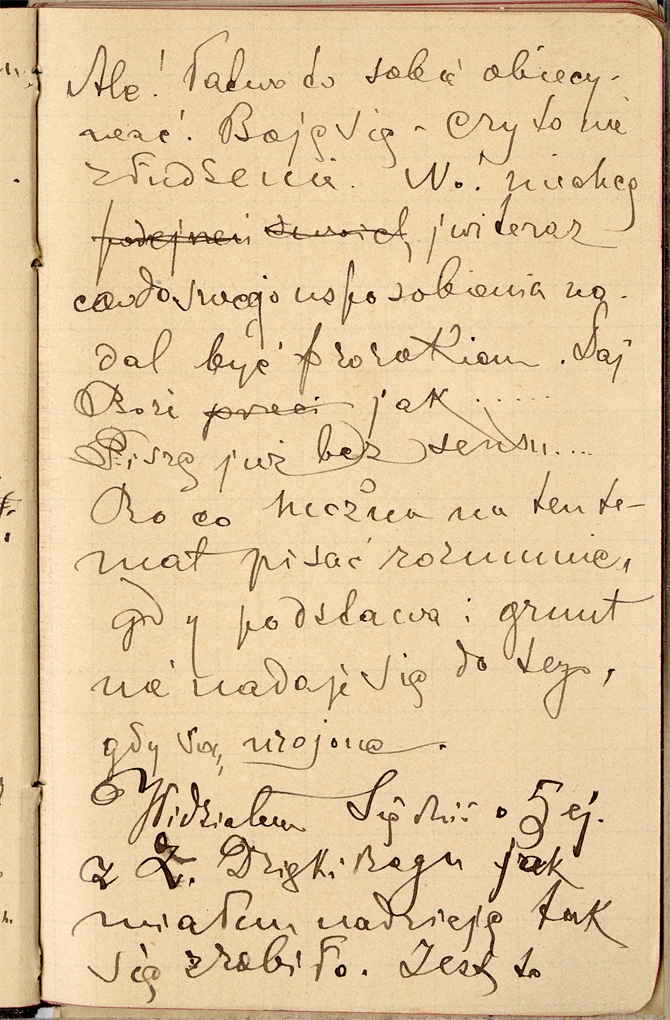 Ale! Łatwo to sobie obiecy-
wać. Boję się - czy to nie
złudzenie. No! niechcę
już teraz
co do swego usposobienia na-
dal być prorokiem. Daj
Boże jak ......
Piszę już bez sensu....
Bo co można na ten te-
mat pisać rozumnie,
gdy podstawa i grunt
nie nadaje się do tego,
gdy są urojone.
Widziałem się dziś o 5ej.
z Z. Dzięki Bogu jak
miałem nadzieję tak
się zrobiło. Jest to